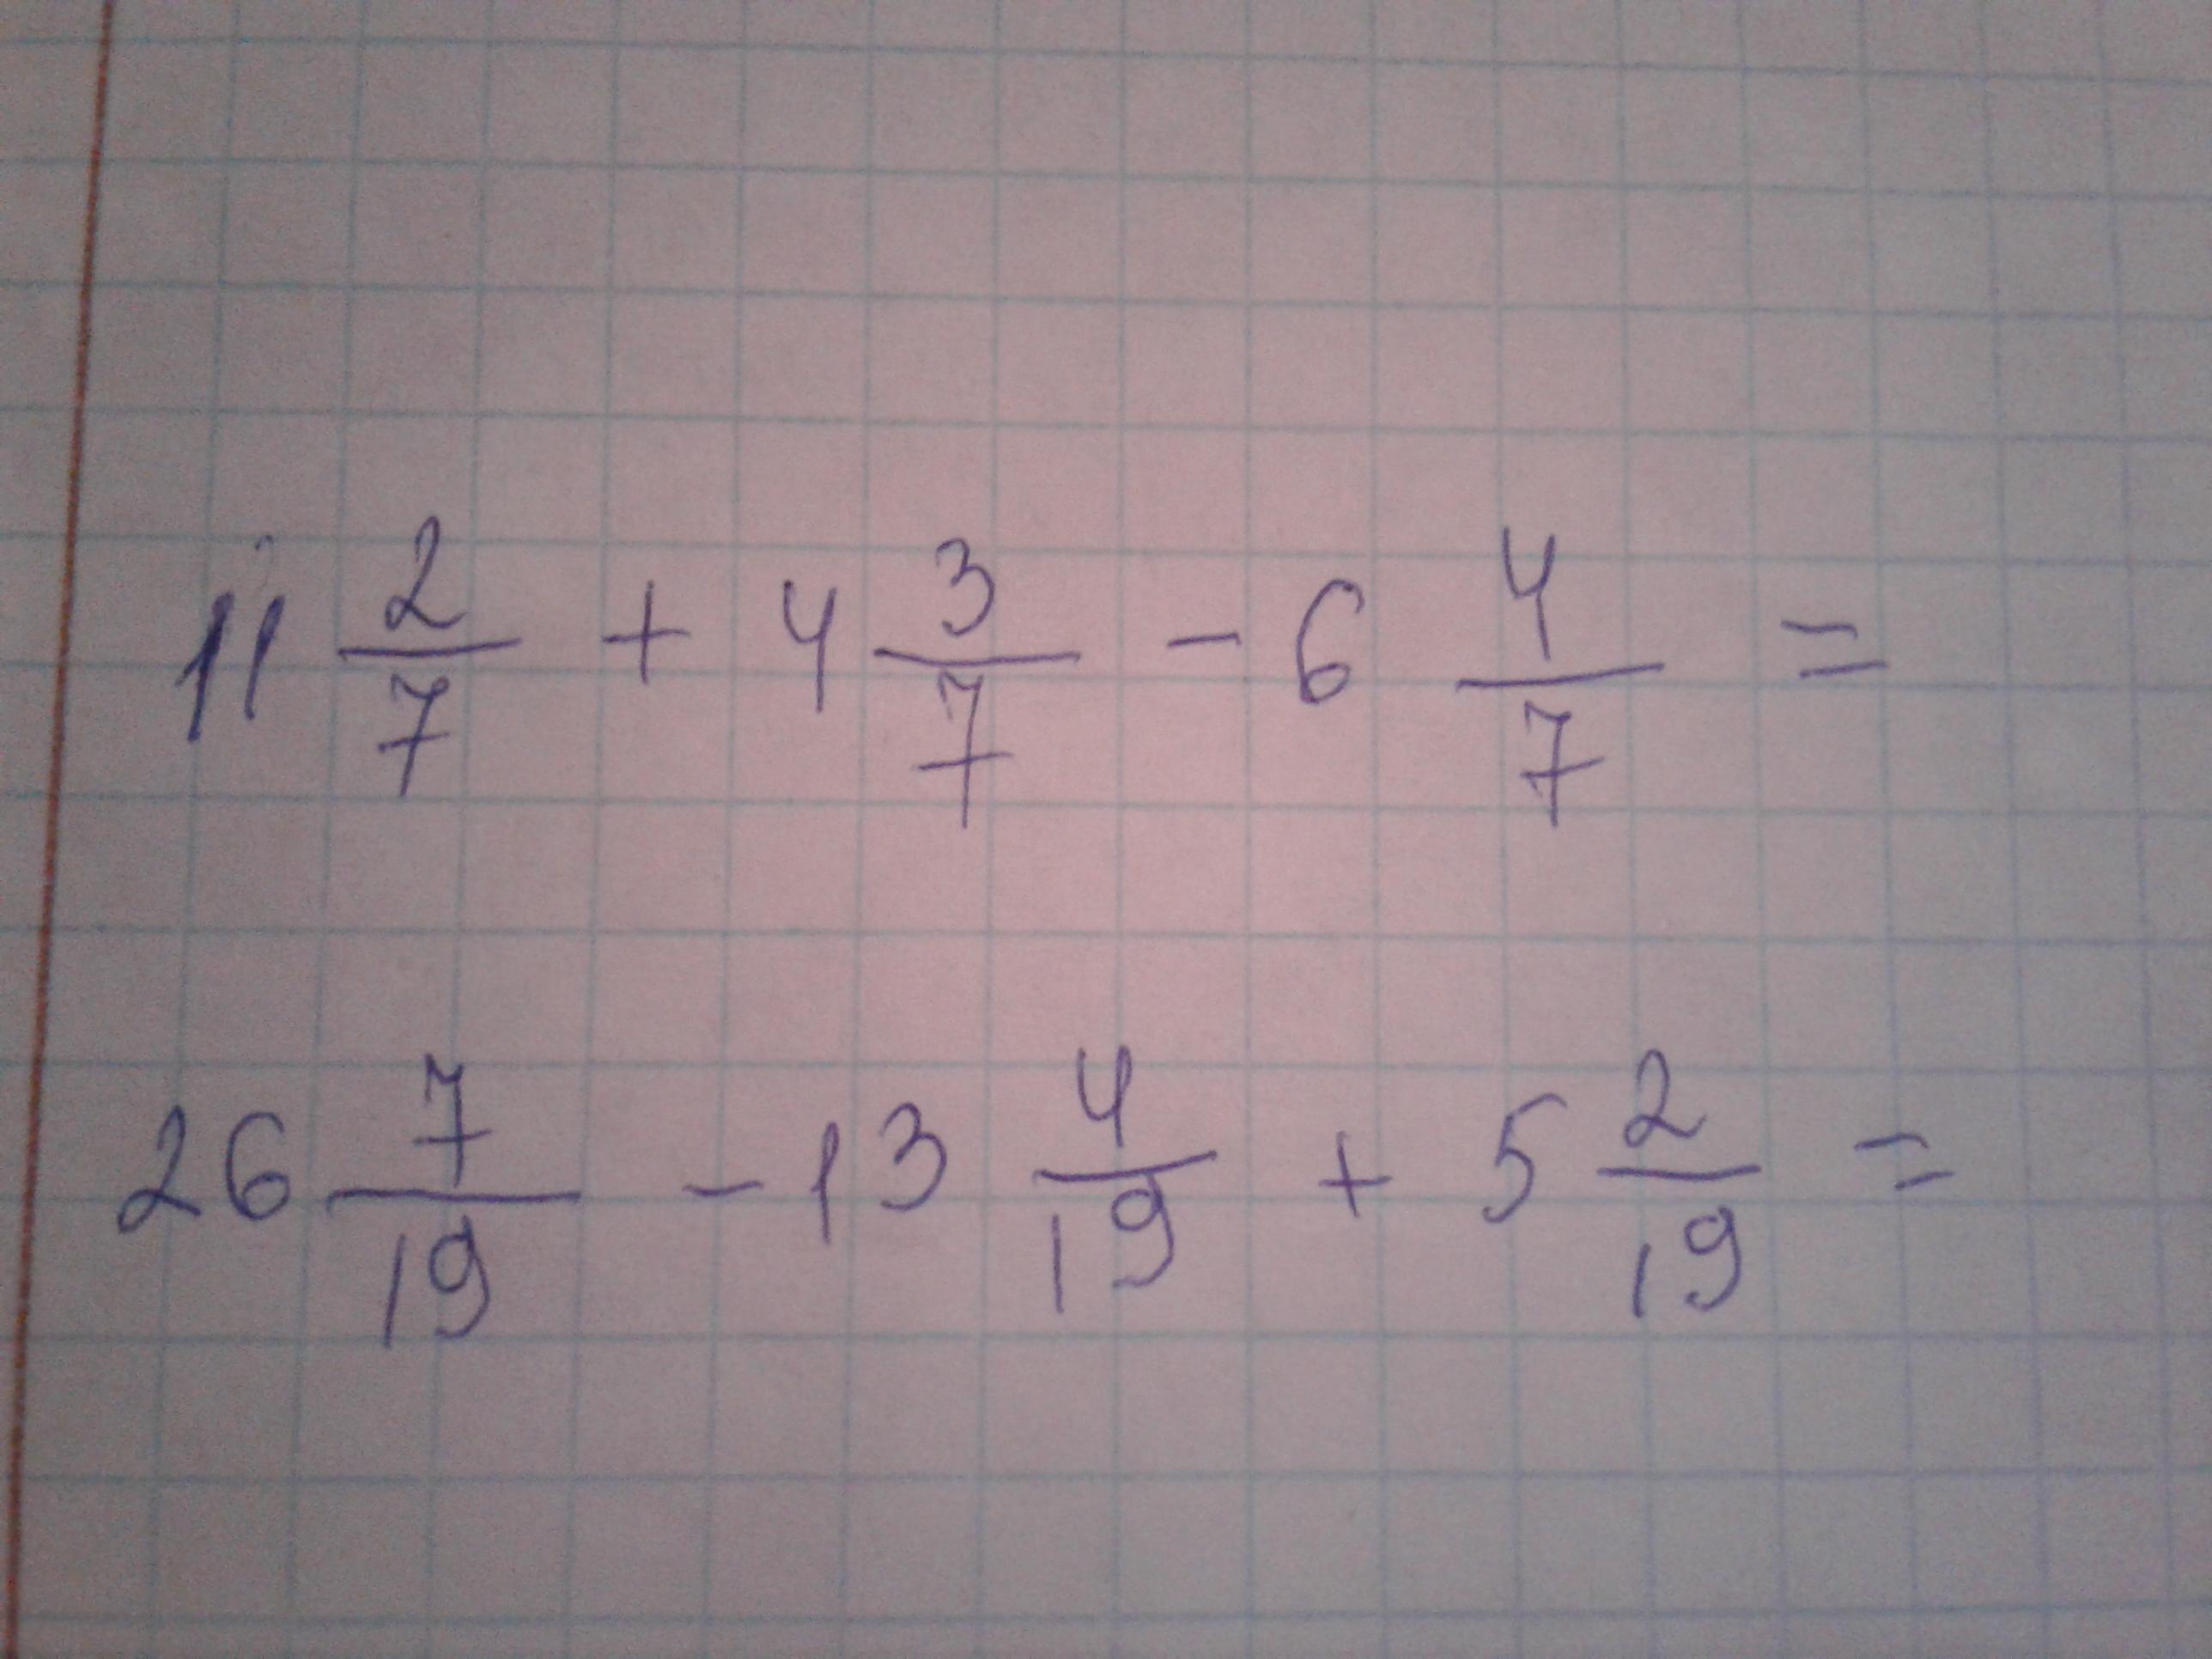 11 2/7 + 4 3/7 - 6 4/7 =
26 7/19 - 13 4/19 + 5 2/19 =